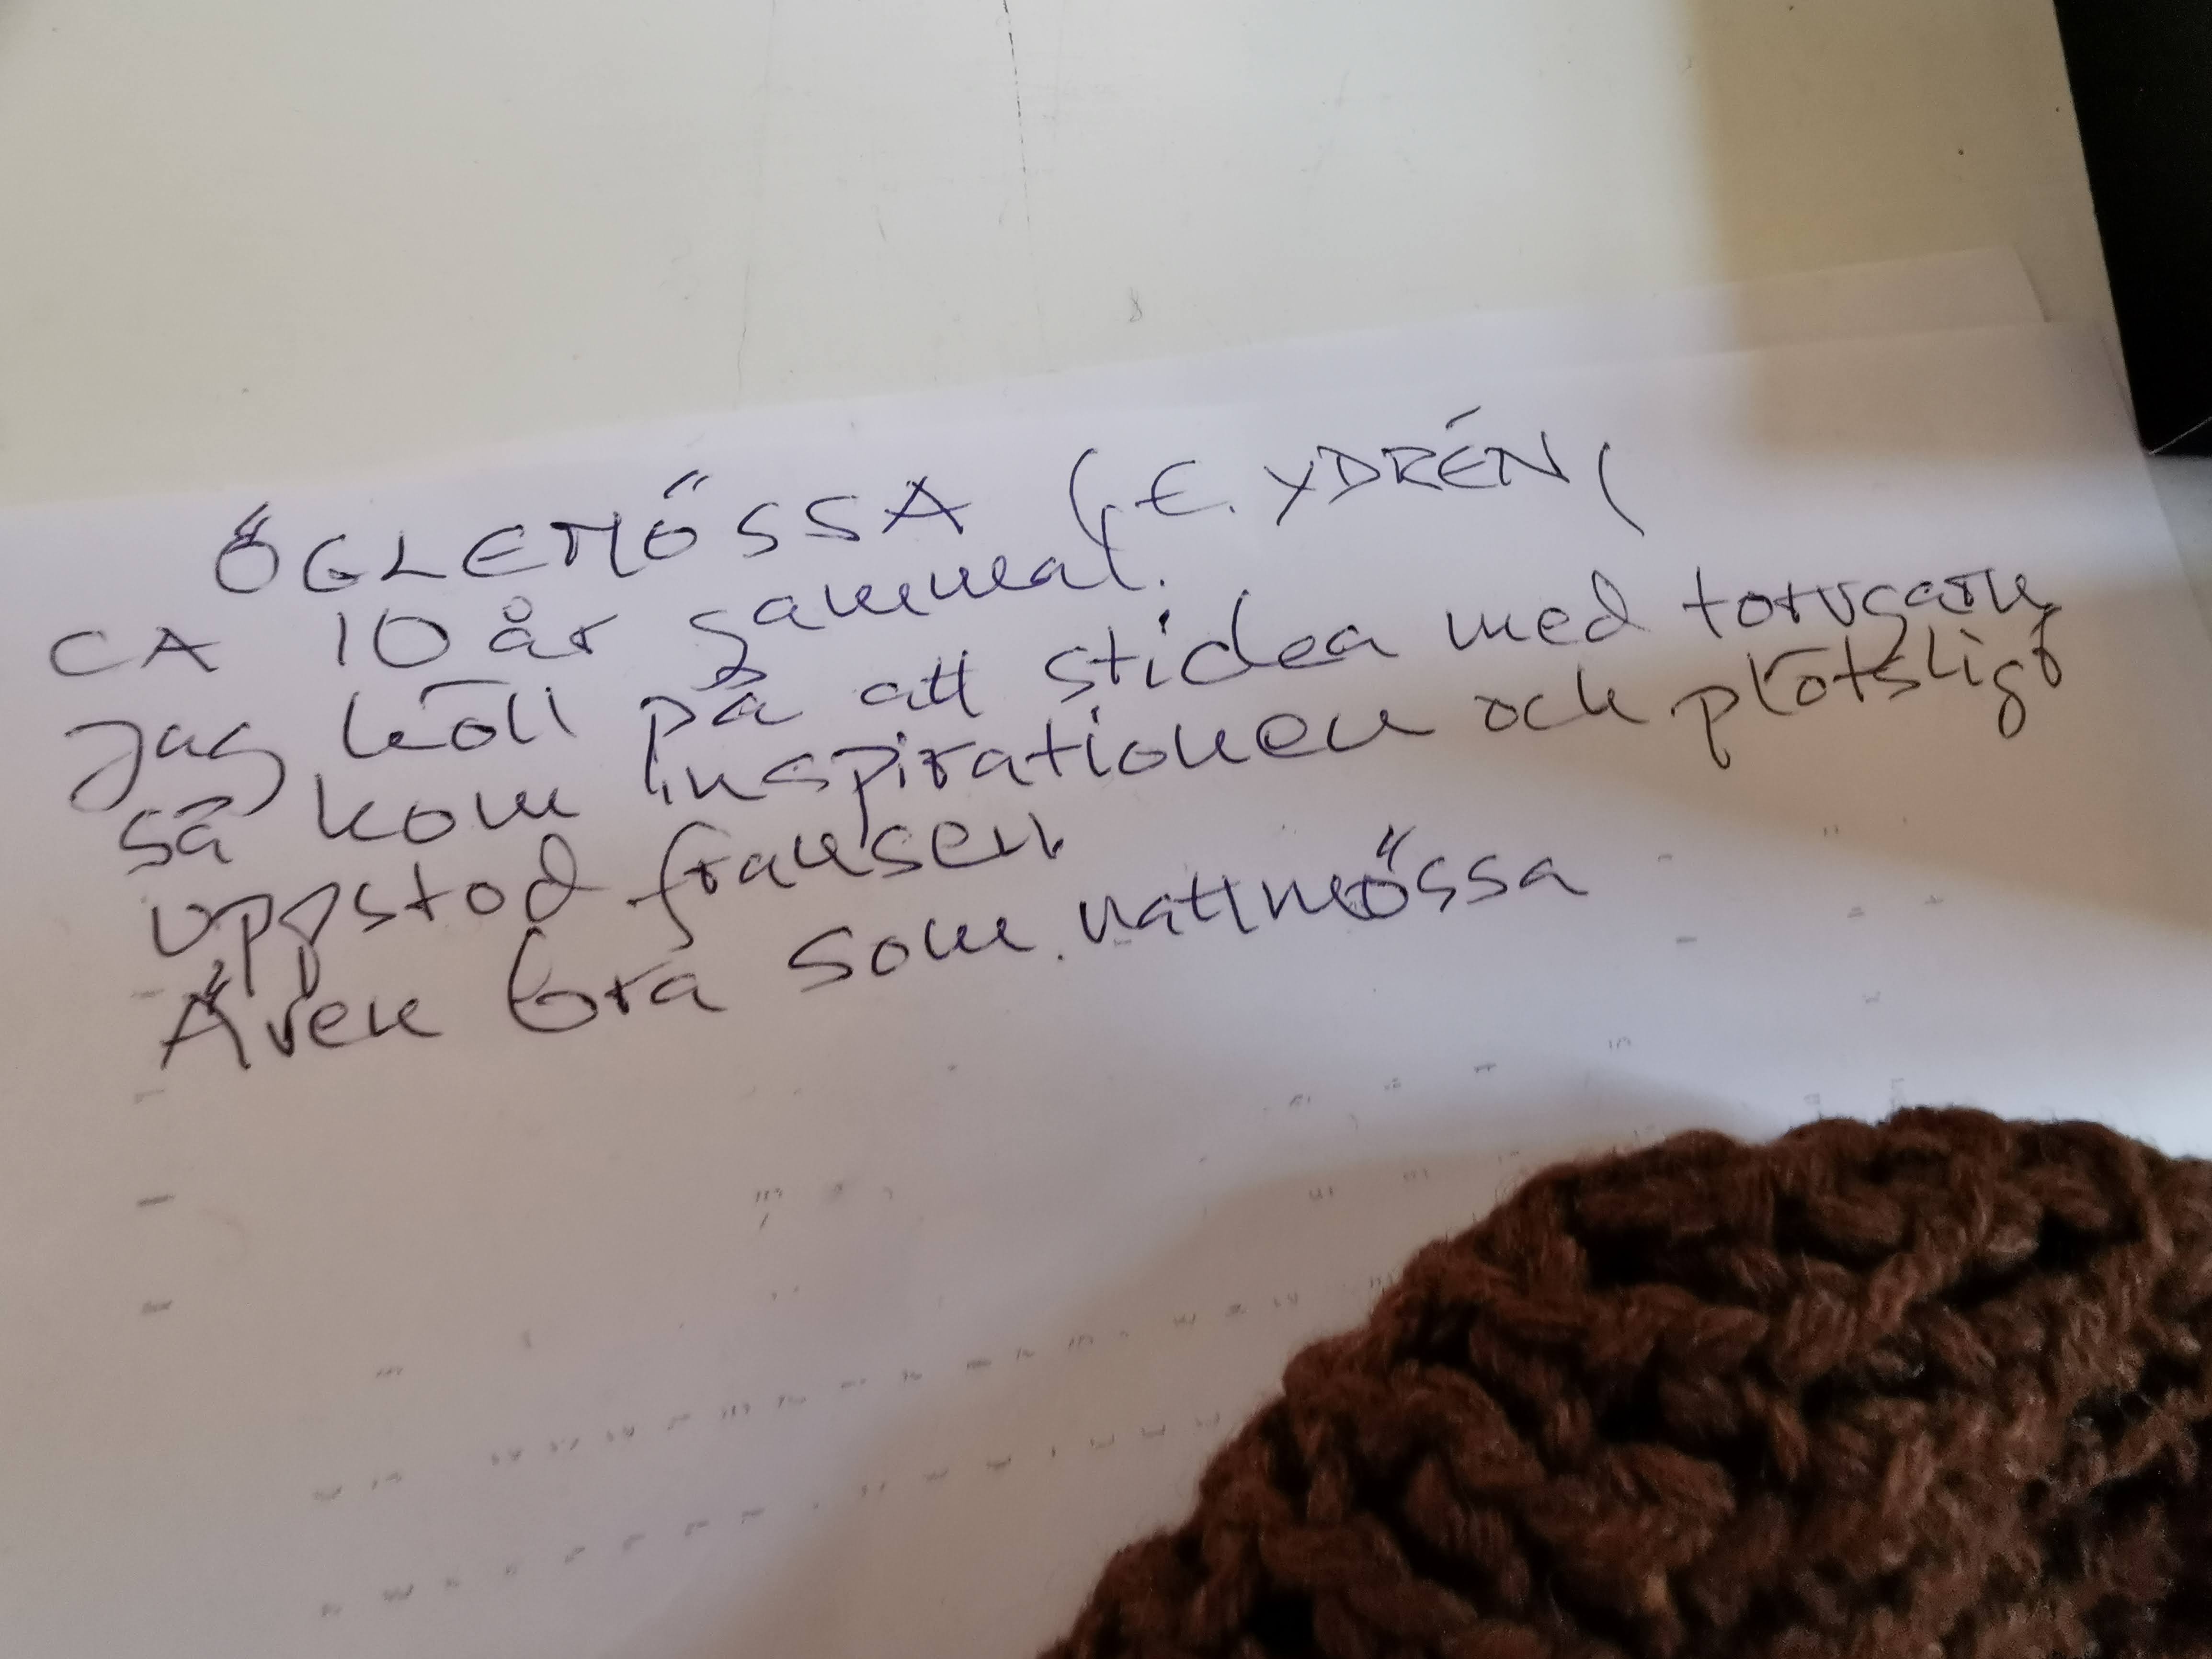 ÖGLEMÖSSA (E. YDRÉN(
CA 10 år gammal.
Jag höll på att sticka med torvgarn
så kom inspirationen och plötsligt
uppstod fransen.
Även bra som nattmössa